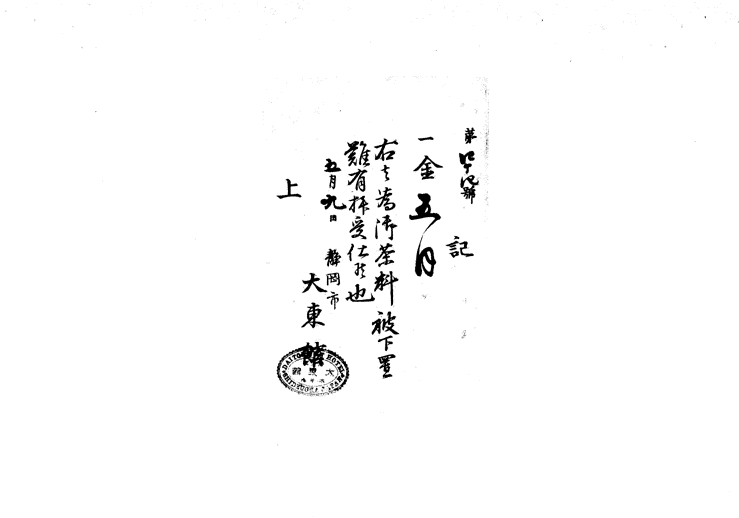 第四十四號
記
一金五円
右者為御茶料被下置
難有拝受仕候也
五月九日
静岡市
大東館
上
DAITO HOTEL
大東館